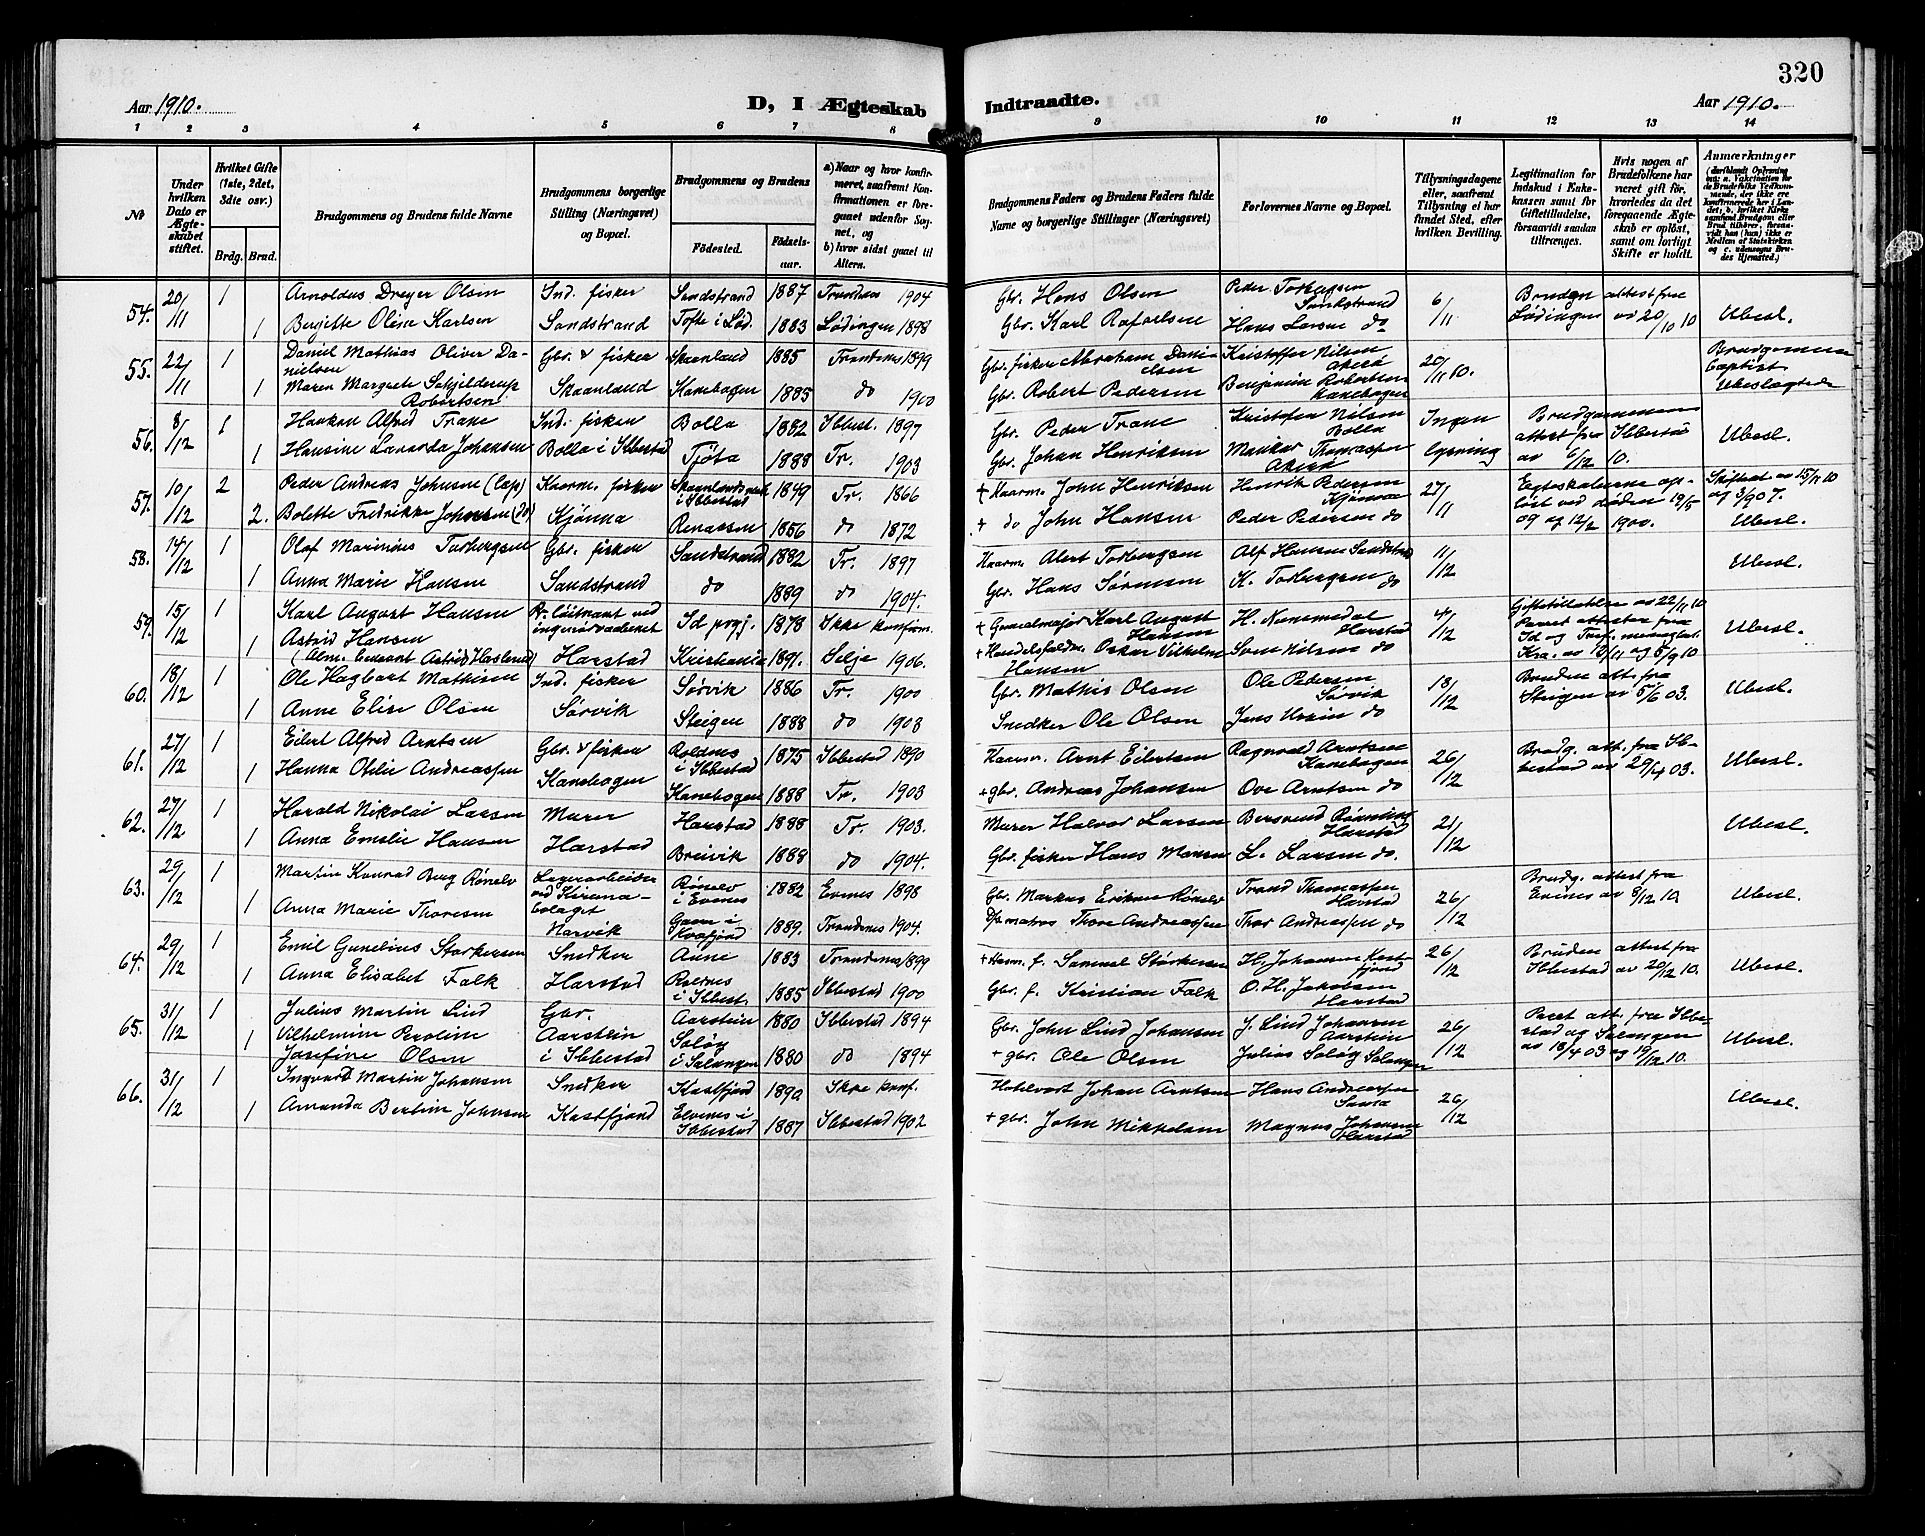 320
Aar 1910.
D, I Ægteskab Indtraadte.
Aar 1910.
1 2 3 4 5 6 7 8 9 10 11 12 13 14
No
Under hvilken Dato er Ægteskabet stiftet.
Hvilket Gifte (1ste, 2det, 3die osv.)
Brdg. Brud.
Brudgommens og Brudens fulde Navne
Brudgommens borgerlige Stilling (Næringsvei) og Bopæl.
Brudgommens og Brudens
Fødested. Fødselsaar.
a) Naar og hvor konfirmeret, saafremt Konfirmationen er foregaaet udenfor Sognet, og b) hvor sidst gaaet til Alters.
Brudgommens Faders og Brudens Faders fulde Navne og borgerlige Stillinger (Næringsvei)
Forlovernes Navne og Bopæl.
Tillysningsdagene eller, saafremt Tillysning ei har fundet Sted, efter hvilken Bevilling.
Legitimation for Indskud i Enkekassen samt for Giftetilladelse, forsaavidt saadan tiltrænges.
Hvis nogen af Brudefolkene har været gift før, hvorledes da det foregaaende Ægteskab er opløst, samt om lovligt Skifte er holdt.
Anmærkninger
54. 20/11 1 Arnoldus Dreyer Olsen Ind. fisker Sandstrand 1887 Trondenes 1904 Gbr. Hans Olsen Peder Torbergsen Sandstrand 6/11 Bruden attest fra
1 Bergitte Oline Karlsen Sandstrand Tofte i Lød. 1883 Lødingen 1898 Gbr. Karl Rafaelsen Hans Larsen do Lødingen av 20/10 10 Ubesl.
55. 22/11 1 Daniel Mathias Oliver Danielsen Gbr. & fisker Skaanland 1885 Trondenes 1899 Gbr. fisker Abraham Danielsen Kristoffer Nilsen Akerå 20/11 10. Brudgommen baptist
1 Maren Margrete Schjelderup Robertsen Skaanland Kanebogen 1885 do 1900 Gbr. Robert Pedersen Benjamin Robertsen Kanebogen Ubeslægtede
56. 8/12 1 Haakon Alfred Trane Ind. fisker Bolla 1882 Ibbest. 1897 Gbr. Peder Trane Kristofer Nilsen Bolla Ingen Brudgommens
1 Hansine Johansen Bolla i Ibbestad Tjøta 1888 Tr. 1903 Gbr. Johan Henriksen Thomassen Akerå lysning attest fra Ibbestad av 6/12 10. Ubesl.
57. 10/12 2 Peder Andreas Johnsen (lap) Haarm. fisker Skaanlands i Ibbestad 1849 Tr. 1866 + Haarm. John Henriksen Henrik Pedersen Kjønna 27/11 Egteskaberne opløst ved døden 19/5 Skifteat. av 15/11 10 og 3/9 07.
2. Bolette Fredrikke Johnsen (do) Kjønna Renaasen 1856 do 1872 + do John Hansen Peder Pedersen do og 12/2 1900. Ubesl.
58. 14/12 1 Olaf Marinius Torbergsen Gbr. fisker Sandstrand 1882 Tr. 1897 Haarm. Alert Torbergsen Alf Hansen Sandstrand 11/12 Ubesl.
1 Anna Marie Hansen Sandstrand do 1889 do 1904. Gbr. Hans Sørensen K. Torbergsen do
59. 15/12 1 Karl August Hansen Pr. løitnant ved ingeniørvaabnet Id prgj. 1878 Ikke konfirm. + Generalmajor Karl August Hansen H. Harstad 4/12 Giftetilladelse av 22/11 10
1 Astrid Hansen (Alm. benævnt Astrid Haslund) Harstad Kristiania 1891. Selje 1906. + Handelsfuldm. Oskar Vilhelm Hansen Sven Nilsen do Parret attester fra Id og Kra. av 12/11 og 5/9 10 Ubesl.
60. 18/12 1 Ole Hagbart Mathisen Ind. fisker Sørvik 1886 Tr. 1900 Gbr. Mathis Olsen Ole Pedersen Sørvik 18/12 Bruden att. fra
1 Anne Elise Olsen Sørvik Steigen 1888 do 1903 Snedker Ole Olsen Jens do Steigen av 5/6 03. Ubesl.
61. 27/12 1 Eilert Alfred Arntsen Gbr. & fisker Roldnes i Ibbestad 1875 Ibbestad 1890 Haarm. Arnt Eilertsen Ragnvald Arntsen Kanebogen 26/12 Brudg. att. fra Ibbestad av 29/4 03.
1 Hanna Otelie Andreassen Kanebogen Kanebogen 1888 Tr. 1903 + gbr. Andreas Johansen Ove Arntsen do Ubesl.
62. 27/12 1 Harald Nikolai Larsen Murer Harstad 1888 Tr. 1903. Murer Halvor Larsen Bersvend Rønning Harstad 21/12 Ubesl.
1 Anna Emelie Hansen Harstad Breivik 1888 do 1904. Gbr. fisker Hans Hansen L. Larsen do.
63. 29/12 1 Martin Konrad Berg Rønelv Lagerarbeider ved Kiruna-bolaget Rønelv i Evenes 1882 Evenes 1898 Gbr. Markus Eriksen Rønelv Trond Thomassen Harstad 26/12 Brudg. attest fra Evenes av 8/12 10. Ubesl.
1 Anna Marie Thoresen Narvik i Kvæfjord 1889. Trondenes 1904. Thore Andreassen Thor Andreassen do
64. 29/12 1 Emil Gunelius Størkersen Snedker Aune 1883 Trondenes 1899 + Haarm. f. Samuel Størkersen H. Johansen Kastfjord 26/12 Bruden attest fra
1 Anna Elisabet Falk Harstad Rolnes i Ibbest. 1885 Ibbestad 1900 Gbr. f. Kristian Falk O. H. Jakobsen Harstad Ibbestad av 20/12 10. Ubesl.
65. 31/12 1 Julius Martin Lind Gbr. Aarstein 1880 Ibbestad 1894 Gbr. John Lind Johansen J. Lind Johansen Aarstein 26/12 Parret att. fra Ibbestad og Salangen
1 Vilhelmine Peroline Josefine Olsen Aarstein i Ibbestad Soløy i Salangen 1880 do 1894 + gbr. Ole Olsen Julius Soløy Salangen av 18/4 03 og 19/12 10. Ubesl.
66. 31/12 1 Ingvard Martin Johansen Snedker Kastfjord 1890 Ikke konf. Hotelvert Johan Arntsen Hans Andreassen Sama 26/12 Ubesl.
1 Amanda Bertine Johnsen Kastfjord Elvenes i Ibbestad 1887 Ibbestad 1902 + gbr. John Mikkelsen Magnus Johansen Harstad